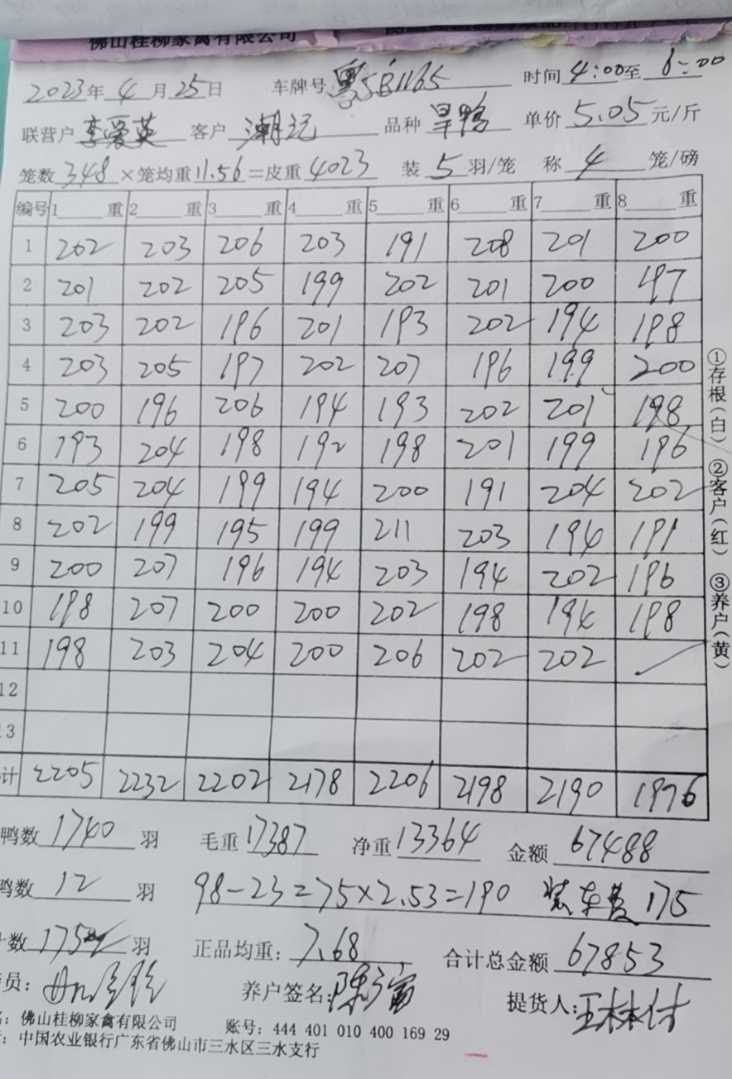 佛山桂柳家禽有限公司
2023年 4 月 25 日 车牌号 粤SB1165 时间 4:00 至 6:00
联营户 李爱英 客户 潮记 品种 旱鸭 单价 5.05 元/斤
笼数 348 ×笼均重 11.56 =皮重 4023 装 5 羽/笼 称 4 笼/磅
编号 1 重 2 重 3 重 4 重 5 重 6 重 7 重 8 重
1 202 203 206 203 191 208 201 200
2 201 202 205 199 202 201 200 197
3 203 202 196 201 193 202 194 198
4 203 205 197 202 207 196 199 200
5 200 196 206 194 193 202 201 198
6 193 204 198 192 198 201 199 196
7 205 204 199 194 200 191 204 202
8 202 199 195 199 211 203 194 191
9 200 207 196 194 203 194 202 196
10 198 207 200 200 202 198 194 198
11 198 203 204 200 206 202 202
12
13
计 2205 2232 2202 2178 2206 2198 2190 1976
鸭数 1740 羽 毛重 17387 净重 13364 金额 67488
鸭数 12 羽 98-23=75×2.53=190 装车费 175
数 1752 羽 正品均重: 7.68 合计总金额 67853
员: 养户签名: 提货人:
: 佛山桂柳家禽有限公司 账号: 444 401 010 400 169 29
: 中国农业银行广东省佛山市三水区三水支行
①存根(白) ②客户(红) ③养户(黄)